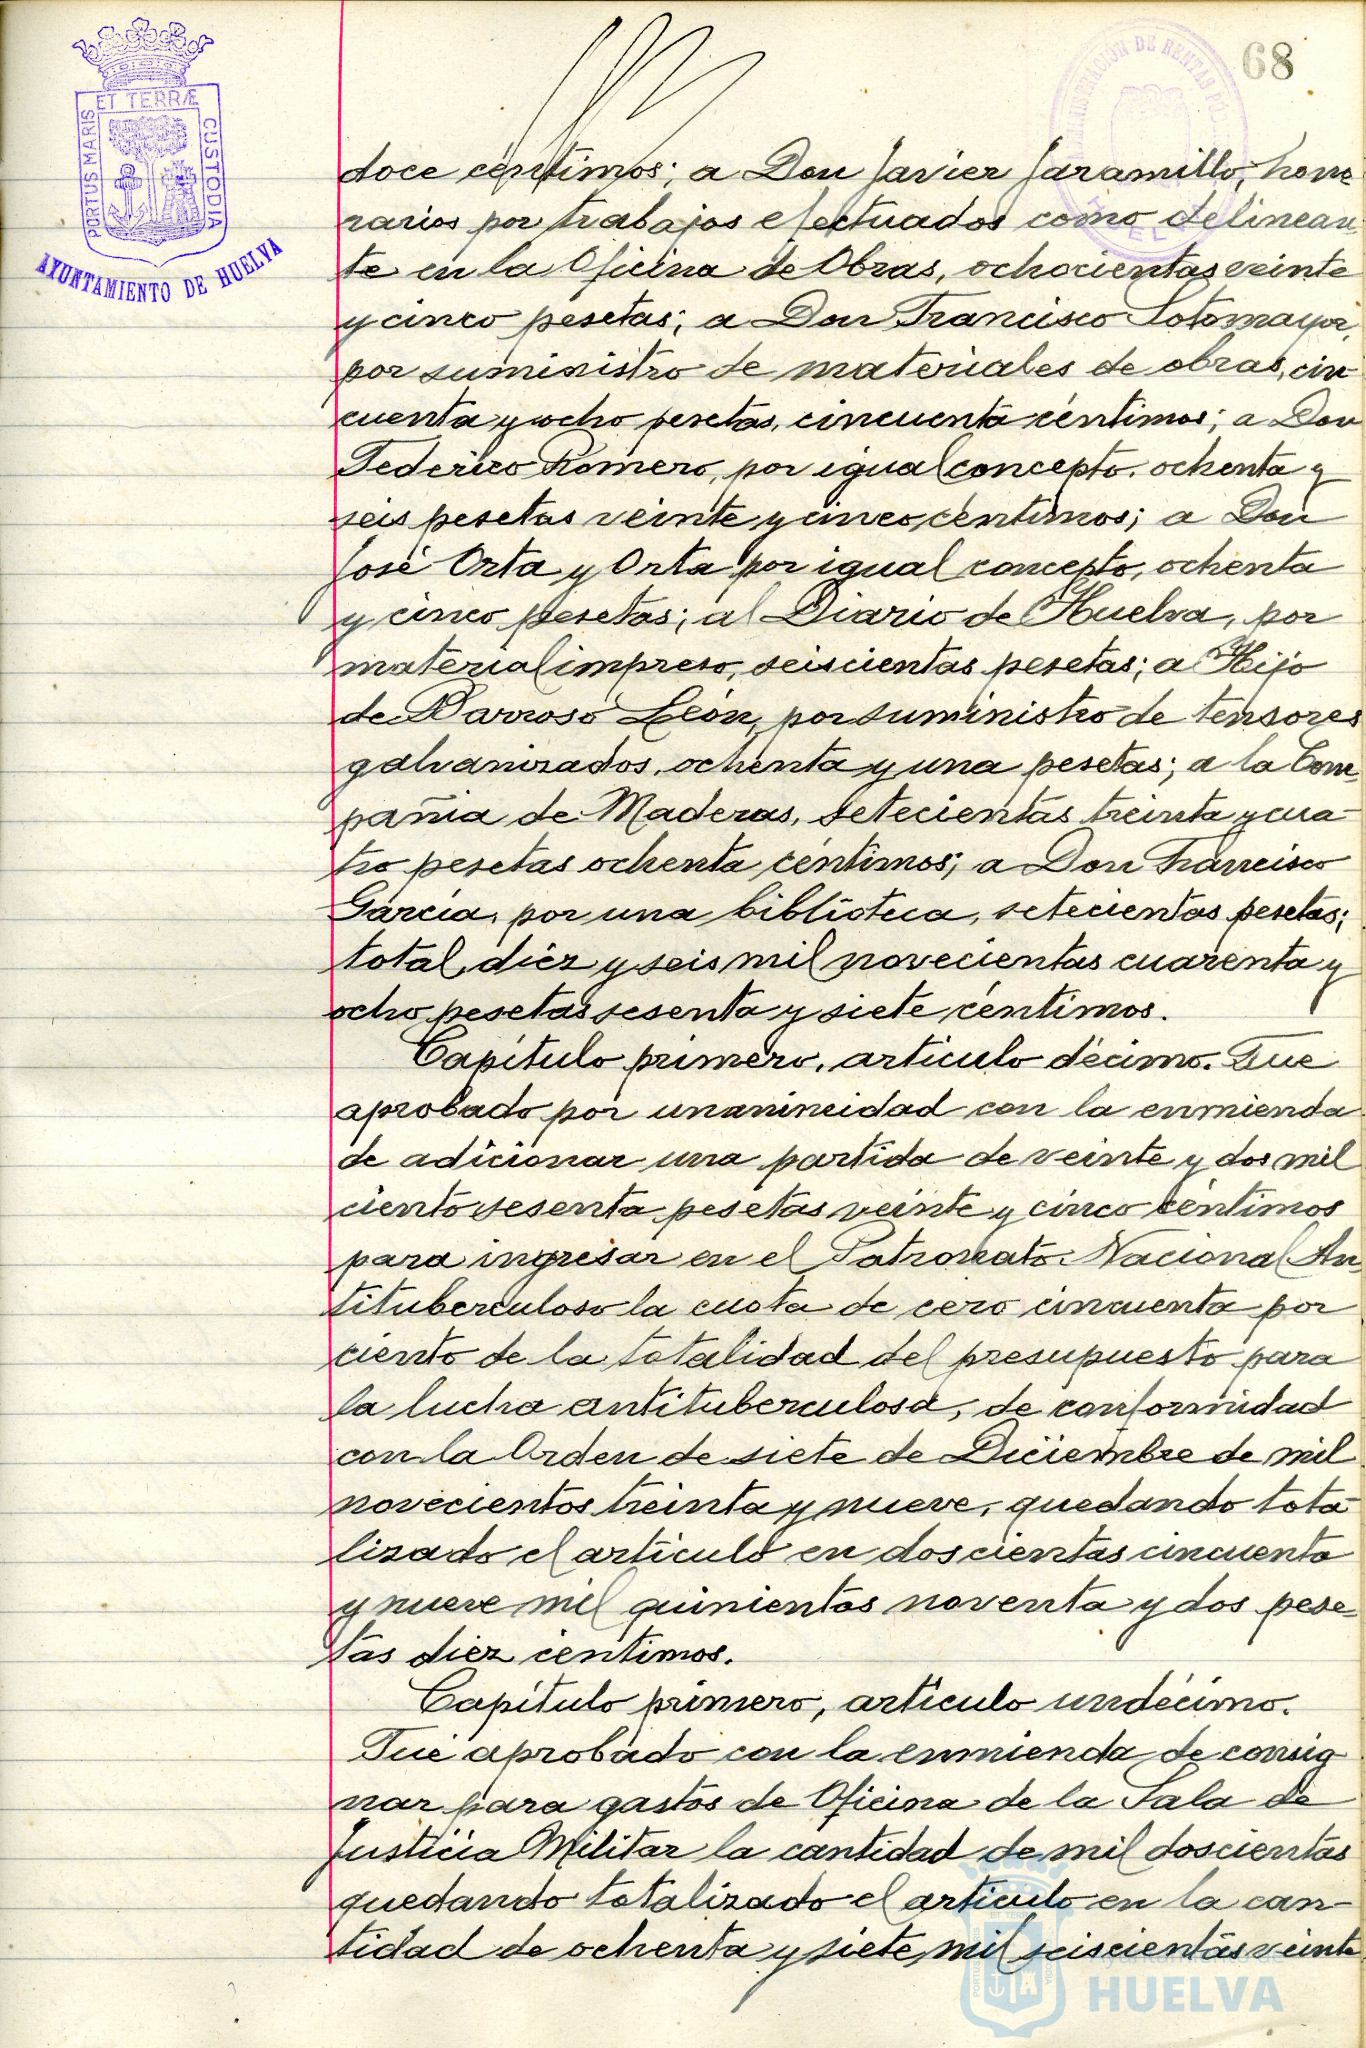 68
ET TERRÆ
PORTUS MARIS
CUSTODIA
AYUNTAMIENTO DE HUELVA
doce céntimos; a Don Javier Jaramillo, hono
rarios por trabajos efectuados como delinean
te en la Oficina de Obras, ochocientas veinte
y cinco pesetas; a Don Francisco Sotomayor,
por suministro de materiales de obras, cin
cuenta y ocho pesetas, cincuenta céntimos; a Don
Federico Romero, por igual concepto, ochenta y
seis pesetas veinte y cinco céntimos; a Don
José Orta y Orta por igual concepto, ochenta
y cinco pesetas; al Diario de Huelva, por
material impreso, seiscientas pesetas; a Hijo
de Barroso León, por suministro de tensores
galvanizados, ochenta y una pesetas; a la Com
pañia de Maderas, setecientas treinta y cua-
tro pesetas ochenta céntimos; a Don Francisco
García, por una biblioteca, setecientas pesetas;
total, diéz y seis mil novecientas cuarenta y
ocho pesetas sesenta y siete céntimos.
Capítulo primero, artículo décimo. Fue
aprobado por unanimidad con la enmienda
de adicionar una partida de veinte y dos mil
ciento sesenta pesetas veinte y cinco céntimos
para ingresar en el Patronato Nacional An
tituberculoso la cuota de cero cincuenta por
ciento de la totalidad del presupuesto para
la lucha antituberculosa, de conformidad
con la Orden de siete de Diciembre de mil
novecientos treinta y nueve, quedando tota
lizado el artículo en doscientas cincuenta
y nueve mil quinientas noventa y dos pese-
tas diez céntimos.
Capítulo primero, artículo undécimo.
Fué aprobado con la enmienda de consig
nar para gastos de Oficina de la Sala de
Justicia Militar la cantidad de mil doscientas
quedando totalizado el artículo en la can-
tidad de ochenta y siete mil seiscientas veinte
Ayuntamiento de
HUELVA